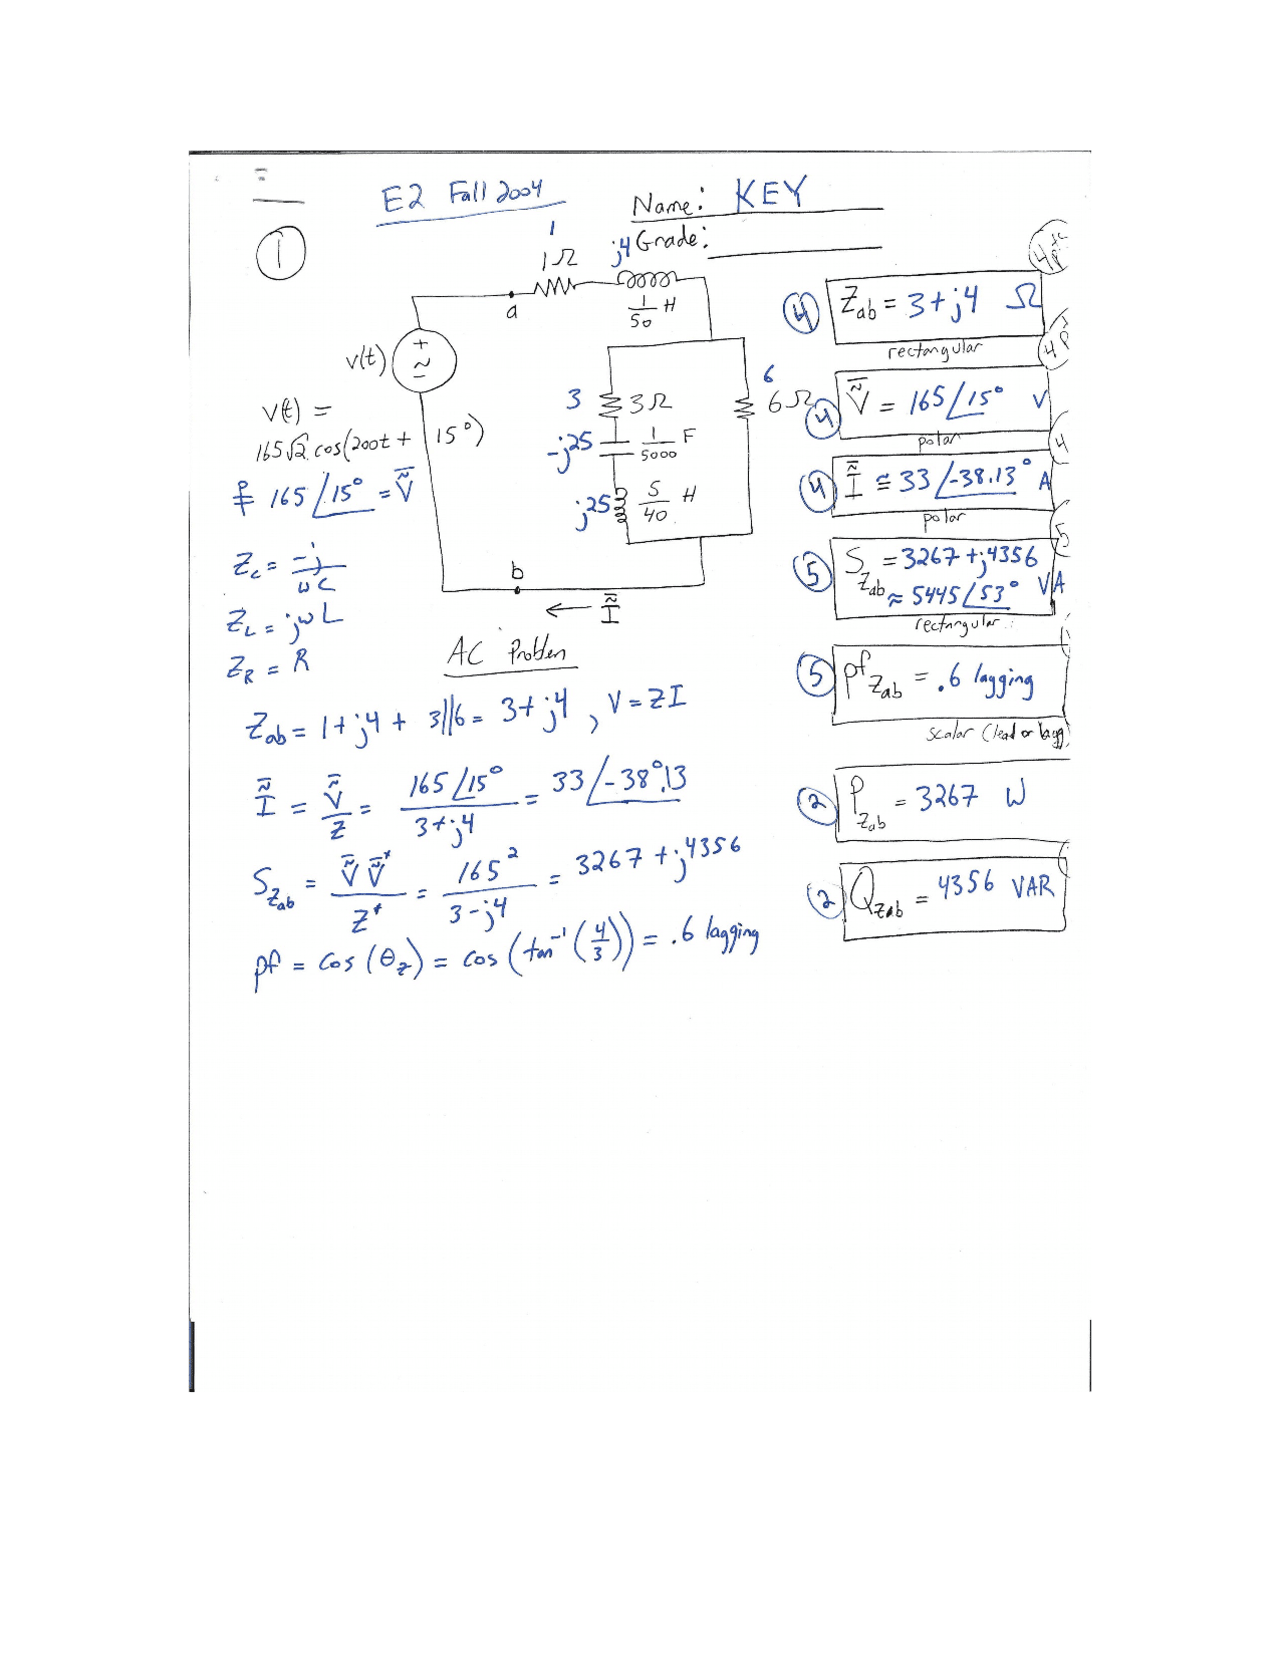 E2 Fall 2004
Name: KEY
Grade:
1
1
1Ω
j4
1/50 H
a
v(t)
+
~
-
v(t) =
165√2 cos(200t + 15°)
165 /15° = Ṽ
3
3Ω
6
6Ω
-j25
1/5000 F
j25
5/40 H
b
← Ĩ
Z_C = -j/ωC
Z_L = jωL
Z_R = R
AC Problem
Z_ab = 1+j4 + 3||6 = 3+j4, V=ZI
Ĩ = Ṽ/Z = 165/15° / 3+j4 = 33/-38°.13
S_Zab = Ṽ Ṽ*/Z* = 165²/3-j4 = 3267 + j4356
pf = cos(θ_z) = cos(tan⁻¹(4/3)) = .6 lagging
4
Z_ab = 3+j4 Ω
rectangular
4
Ṽ = 165/15° V
polar
4
Ĩ ≅ 33/-38.13° A
polar
5
S_Zab = 3267 + j4356
≈ 5445/53° VA
rectangular
5
pf_Zab = .6 lagging
scalar (lead or lagg)
2
P_Zab = 3267 W
2
Q_Zab = 4356 VAR